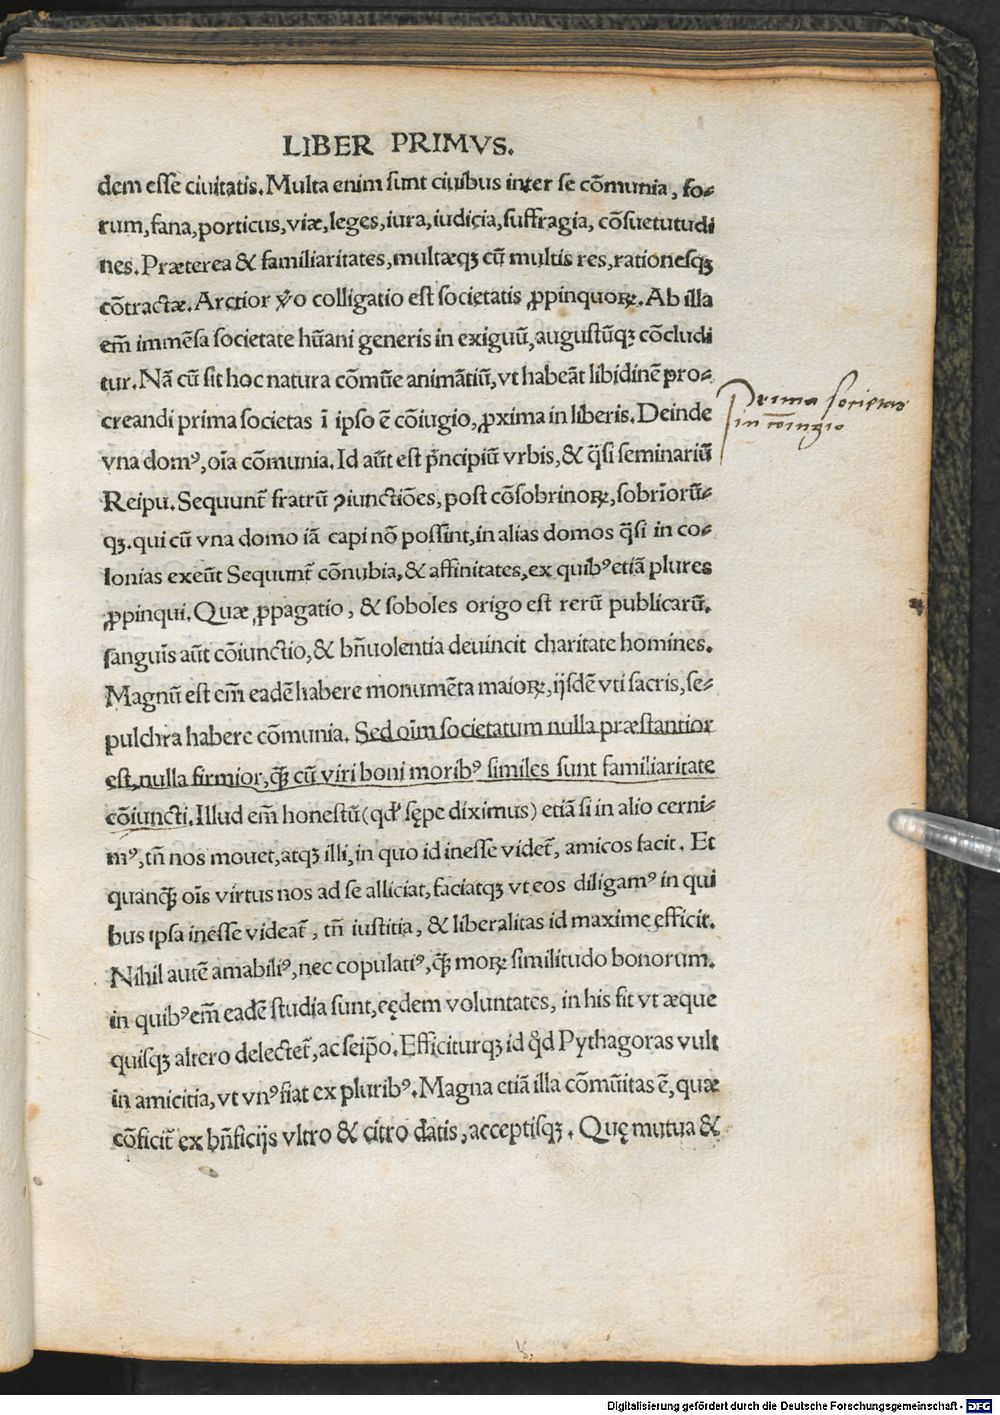 LIBER PRIMVS.
dem eſſe ciuitatis. Multa enim ſunt ciuibus inter ſe cōmunia, fo⸗
rum, fana, porticus, viæ, leges, iura, iudicia, ſuffragia, cōſuetutudi
nes. Præterea & familiaritates, multæqꝫ cū multis res, rationeſqꝫ
cōtractæ. Arctior ꝟo colligatio eſt ſocietatis ꝓpinquoꝝ. Ab illa
em̄ immēſa ſocietate hūani generis in exiguū, auguſtūqꝫ cōcludi
tur. Nā cū ſit hoc natura cōmūe animātiū, vt habeāt libidinē pro⸗
creandi prima ſocietas ī ipſo ē cōiugio, ꝓxima in liberis. Deinde
vna domꝰ, oīa cōmunia. Id aūt eſt pn̄cipiū vrbis, & q̄ſi ſeminariū
Reipu. Sequunt̄ fratrū ꝯiunctiōes, poſt cōſobrinoꝝ, ſobrīorū⸗
qꝫ. qui cū vna domo iā capi nō poſſint, in alias domos q̄ſi in co⸗
lonias exeūt Sequunt̄ cōnubia, & affinitates, ex quibꝰ etiā plures
ꝓpinqui. Quæ ꝓpagatio, & ſoboles origo eſt rerū publicarū.
ſanguīs aūt cōiunctio, & bn̄uolentia deuincit charitate homines.
Magnū eſt em̄ eadē habere monumēta maioꝝ, ijſdē vti ſacris, ſe⸗
pulchra habere cōmunia. Sed oīm ſocietatum nulla præſtantior
eſt, nulla firmior, qꝫ̄ cū viri boni moribꝰ ſimiles ſunt familiaritate
cōiuncti. Illud em̄ honeſtū (qđ ſępe diximus) etiā ſi in alio cerni⸗
mꝰ, tn̄ nos mouet, atqꝫ illi, in quo id ineſſe videt̄, amicos facit. Et
quanqꝫ̄ oīs virtus nos ad ſe alliciat, faciatqꝫ vt eos diligamꝰ in qui
bus ipſa ineſſe videat̄, tn̄ iuſtitia, & liberalitas id maxime efficit.
Nihil autē amabiliꝰ, nec copulatiꝰ, qꝫ̄ moꝝ ſimilitudo bonorum.
in quibꝰ em̄ eadē ſtudia ſunt, eędem voluntates, in his fit vt æque
quiſqꝫ altero delectet̄, ac ſeip̄o. Efficiturqꝫ id qd̄ Pythagoras vult
in amicitia, vt vnꝰ fiat ex pluribꝰ. Magna etiā illa cōmūitas ē, quæ
cōficit̄ ex bn̄ficijs vltro & citro datis, acceptiſqꝫ. Quę mutua &
Prima ſocietas
in coniugio
Digitalisierung gefördert durch die Deutsche Forschungsgemeinschaft - DFG